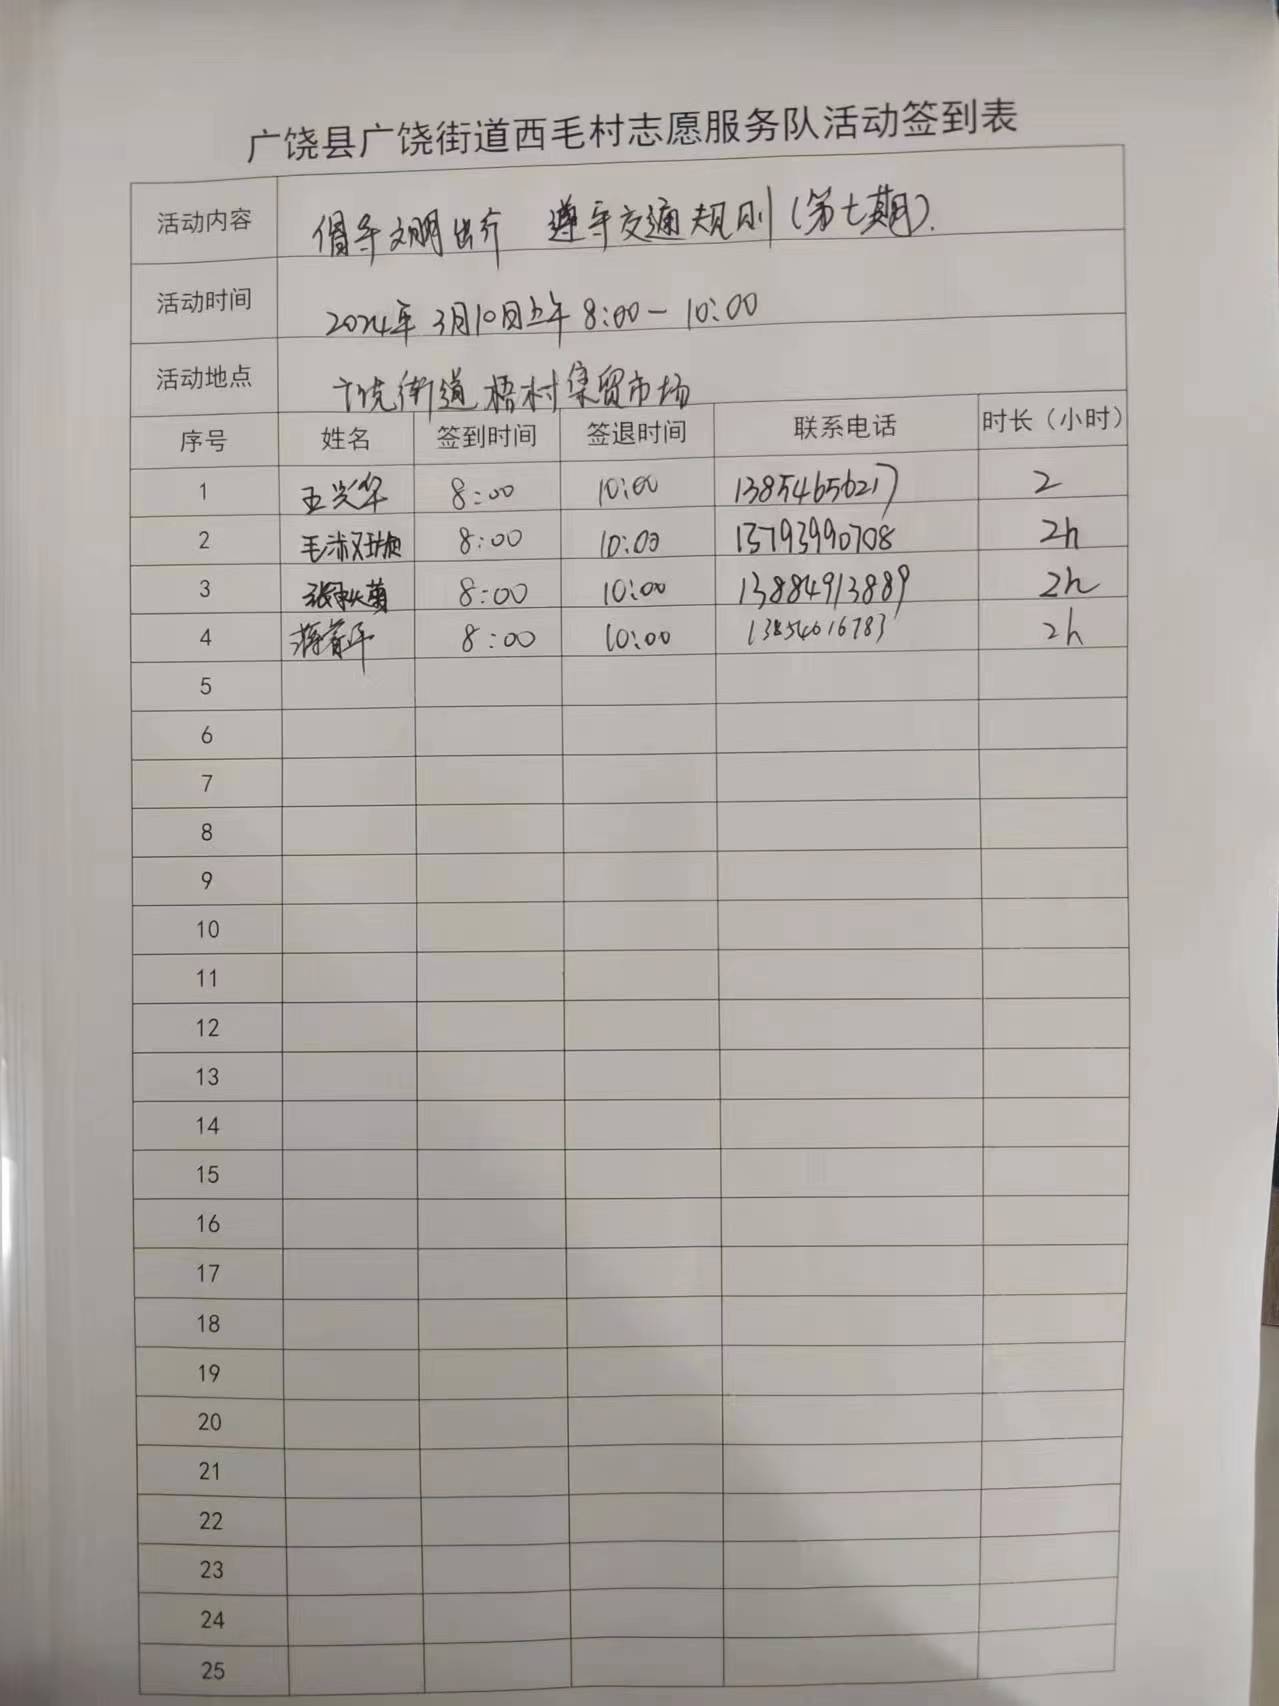 广饶县广饶街道西毛村志愿服务队活动签到表
活动内容 倡导文明出行 遵守交通规则(第七期).
活动时间 2024年3月10日上午8:00-10:00
活动地点 广饶街道梧村集贸市场
序号 姓名 签到时间 签退时间 联系电话 时长(小时)
1 王兴华 8:00 10:00 13854656217 2
2 8:00 10:00 13793990708 2h
3 张秋菊 8:00 10:00 13884913889 2h
4 8:00 10:00 13854616783 2h
5
6
7
8
9
10
11
12
13
14
15
16
17
18
19
20
21
22
23
24
25